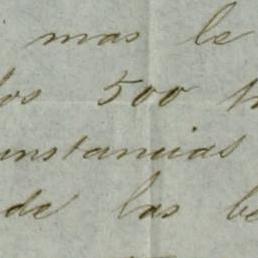 mas le
los 500
unstancias
de las be